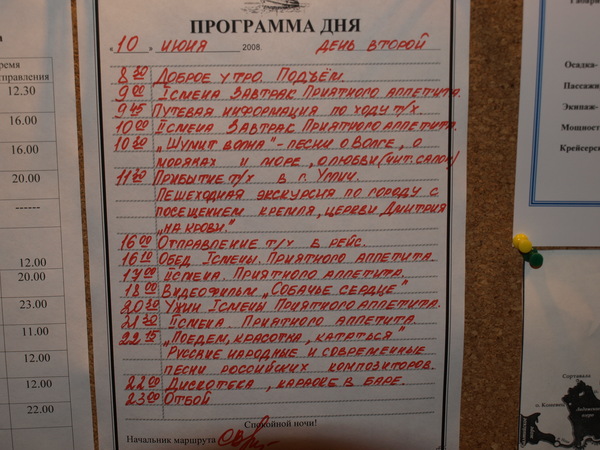 а
ремя
отправления
12.30
16.00
16.00
20.00
------
12.00
20.00
23.00
11.00
12.00
22.00
ПРОГРАММА ДНЯ
« 10 » ИЮНЯ 2008. ДЕНЬ ВТОРОЙ
8 30 ДОБРОЕ УТРО. ПОДЪЁМ.
9 00 I СМЕНА ЗАВТРАК ПРИЯТНОГО АППЕТИТА.
9 45 ПУТЕВАЯ ИНФОРМАЦИЯ ПО ХОДУ Т/Х.
10 00 II СМЕНА ЗАВТРАК ПРИЯТНОГО АППЕТИТА.
10 30 „ШУМИТ ВОЛНА" - ПЕСНИ О ВОЛГЕ, О
МОРЯКАХ И МОРЕ, О ЛЮБВИ (ЧИТ. САЛОН)
11 30 ПРИБЫТИЕ Т/Х В Г. УГЛИЧ.
ПЕШЕХОДНАЯ ЭКСКУРСИЯ ПО ГОРОДУ С
ПОСЕЩЕНИЕМ КРЕМЛЯ, ЦЕРКВИ ДМИТРИЯ
„НА КРОВИ."
16 00 ОТПРАВЛЕНИЕ Т/Х В РЕЙС.
16 10 ОБЕД I СМЕНЫ. ПРИЯТНОГО АППЕТИТА.
17 00 II СМЕНА. ПРИЯТНОГО АППЕТИТА.
18 00 ВИДЕОФИЛЬМ „СОБАЧЬЕ СЕРДЦЕ"
20 30 УЖИН I СМЕНЫ ПРИЯТНОГО АППЕТИТА.
21 30 II СМЕНА. ПРИЯТНОГО АППЕТИТА.
22 15 „ПОЕДЕМ, КРАСОТКА, КАТАТЬСЯ"
РУССКИЕ НАРОДНЫЕ И СОВРЕМЕННЫЕ
ПЕСНИ РОССИЙСКИХ КОМПОЗИТОРОВ.
22 00 ДИСКОТЕКА, КАРАОКЕ В БАРЕ.
23 00 ОТБОЙ
Спокойной ночи!
Начальник маршрута
Габари
Осадка-
Пассажи
Экипаж-
Мощност
Крейсерс
Сортавала
о. Коневец
Ладожское
озеро